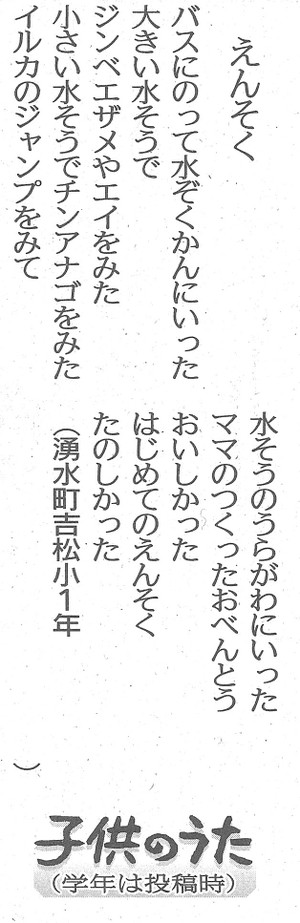 えんそく
バスにのって水ぞくかんにいった
大きい水そうで
ジンベエザメやエイをみた
小さい水そうでチンアナゴをみた
イルカのジャンプをみて
水そうのうらがわにいった
ママのつくったおべんとう
おいしかった
はじめてのえんそく
たのしかった
（湧水町吉松小1年
）
子供のうた
（学年は投稿時）